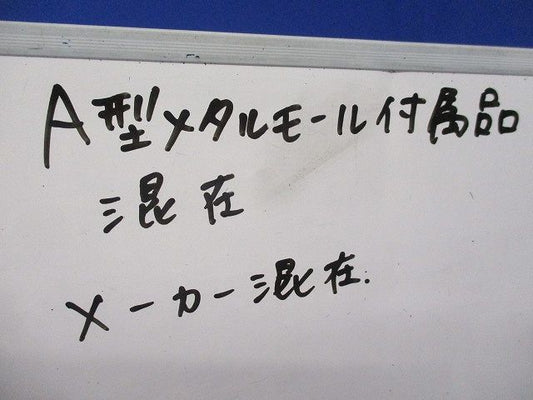 A型メタルモール付属品
混在
メーカー混在.